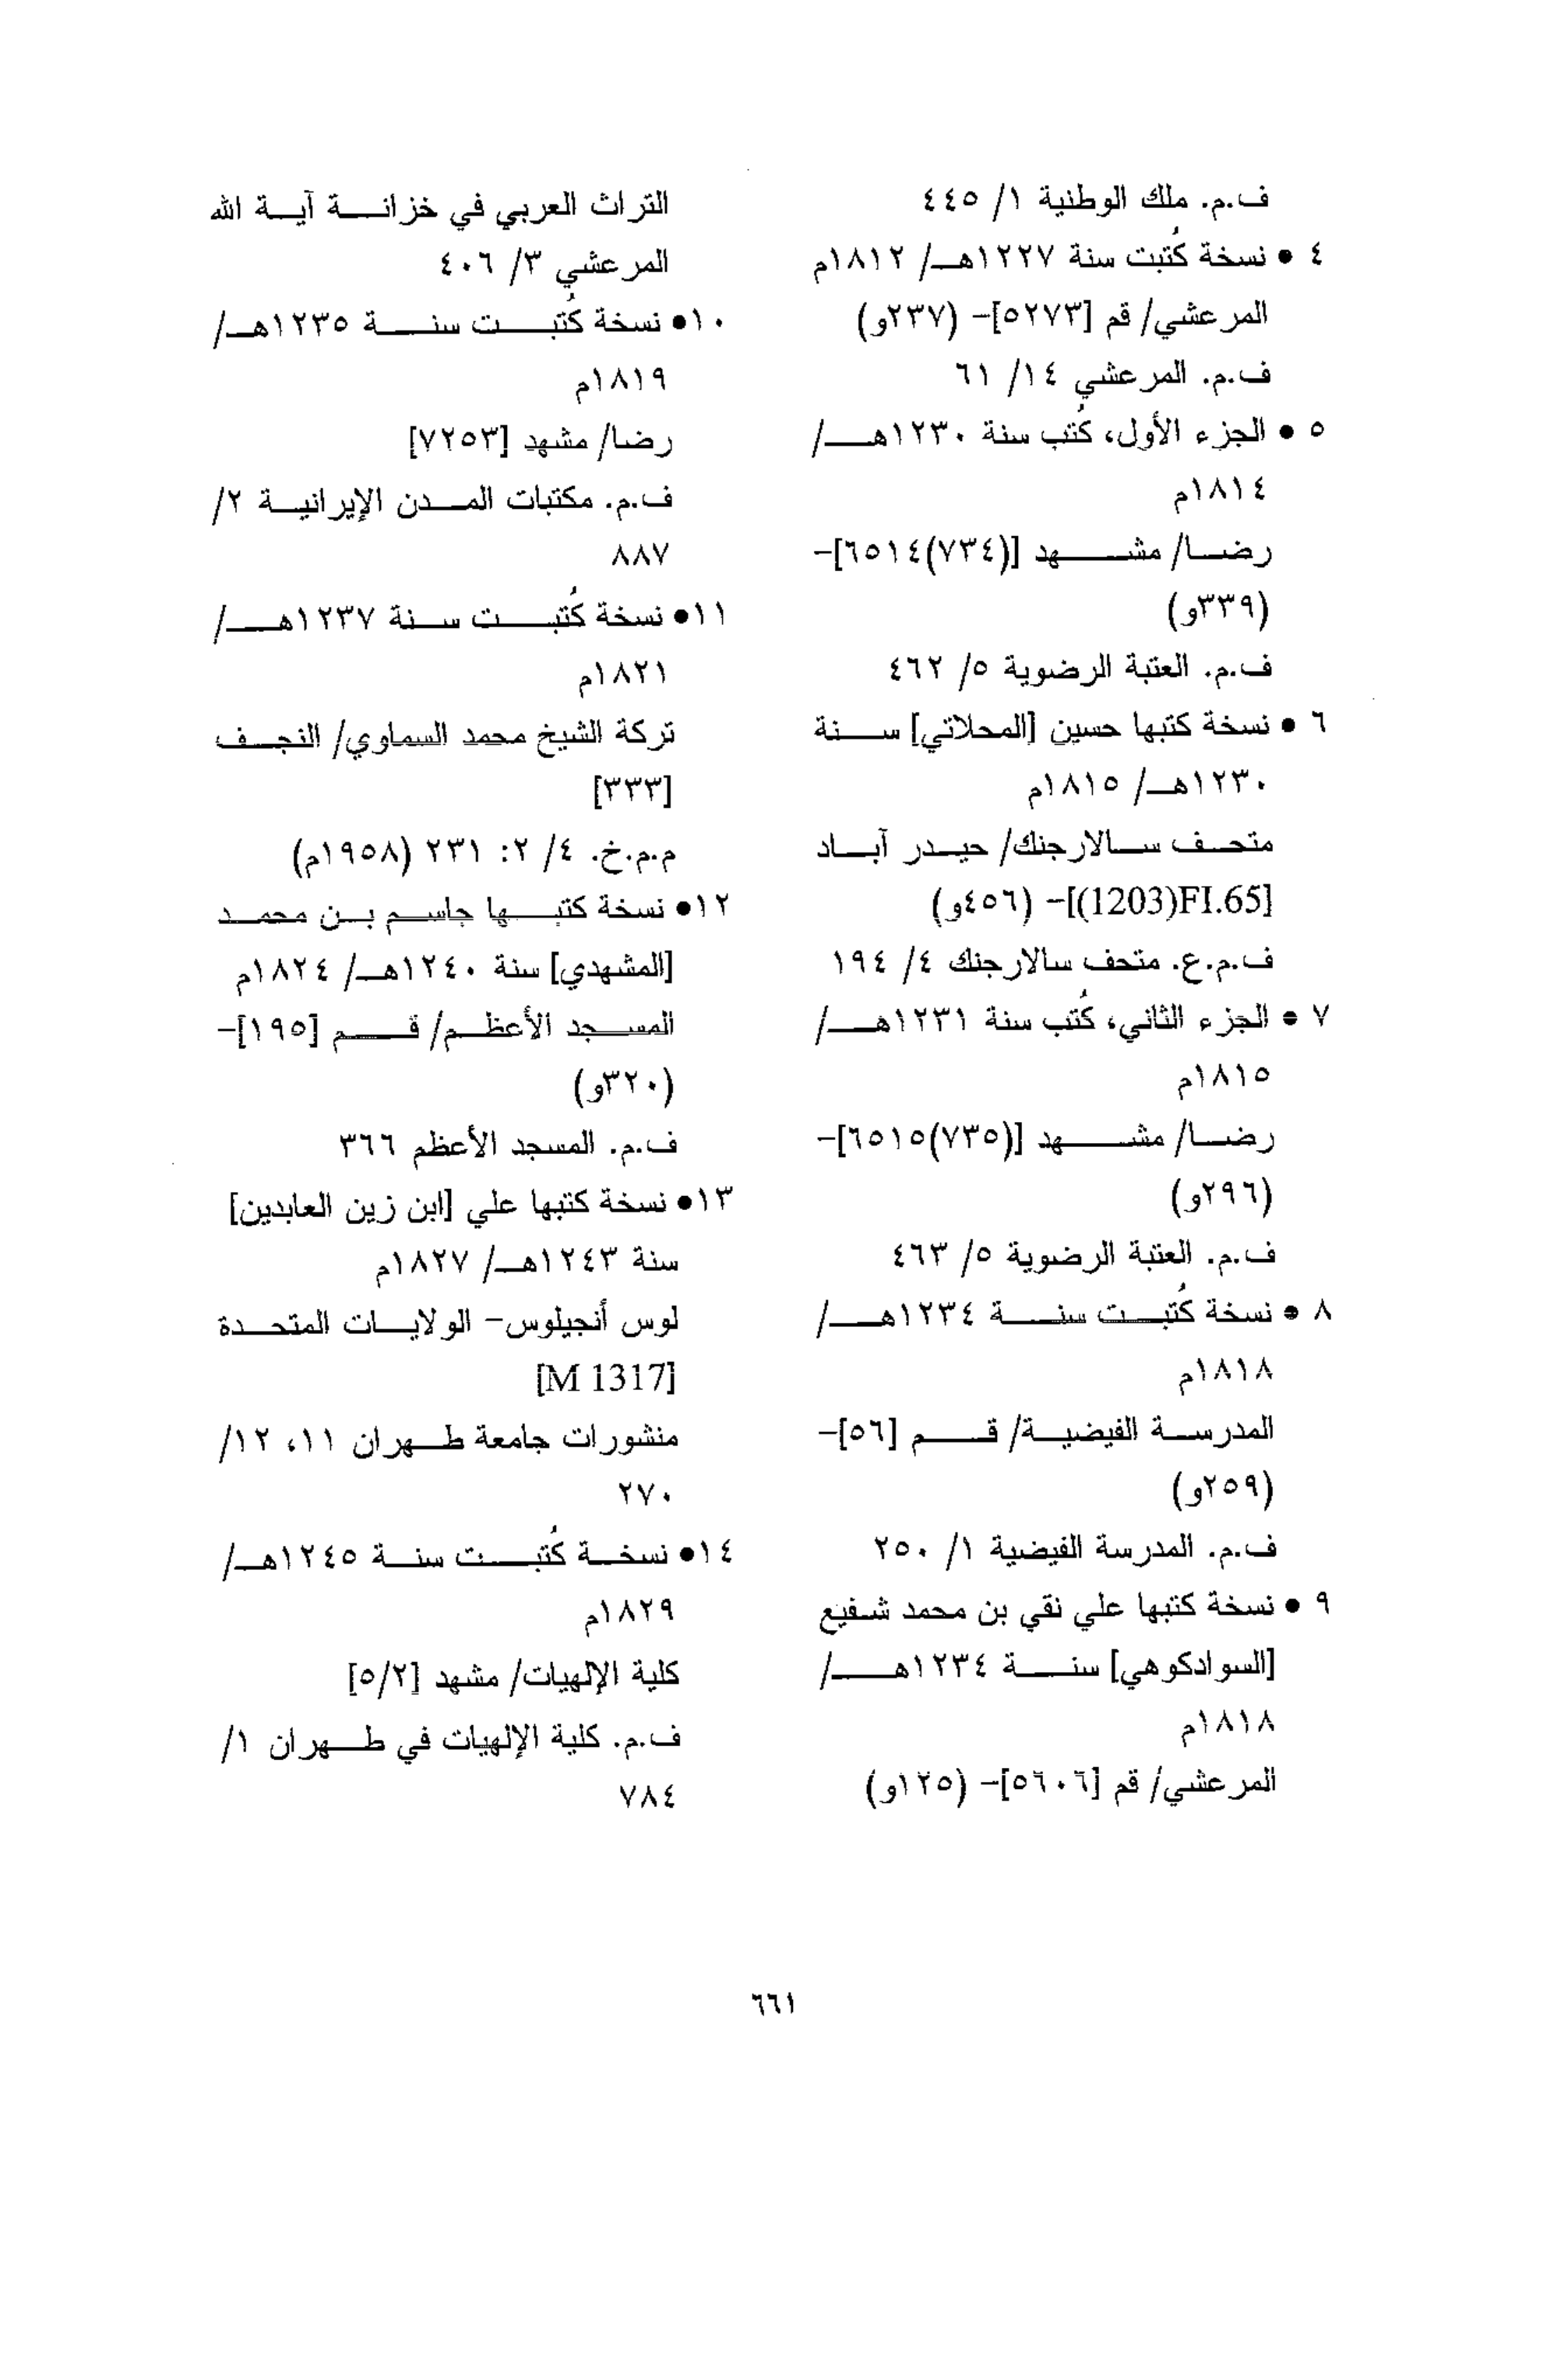 ف.م. ملك الوطنية ١/ ٤٤٥
٤ • نسخة كُتبت سنة ١٢٢٧هـ/ ١٨١٢م
المرعشي/ قم [٥٢٧٣]- (٢٣٧و)
ف.م. المرعشي ١٤/ ٦١
٥ • الجزء الأول، كُتب سنة ١٢٣٠هـ/
١٨١٤م
رضا/ مشهد [(٧٣٤)٦٥١٤]-
(٣٣٩و)
ف.م. العتبة الرضوية ٥/ ٤٦٢
٦ • نسخة كتبها حسين [المحلاتي] سنة
١٢٣٠هـ/ ١٨١٥م
متحف سالارجنك/ حيدر آباد
[(1203)FI.65]- (٤٥٦و)
ف.م.ع. متحف سالارجنك ٤/ ١٩٤
٧ • الجزء الثاني، كُتب سنة ١٢٣١هـ/
١٨١٥م
رضا/ مشهد [(٧٣٥)٦٥١٥]-
(٢٩٦و)
ف.م. العتبة الرضوية ٥/ ٤٦٣
٨ • نسخة كُتبت سنة ١٢٣٤هـ/
١٨١٨م
المدرسة الفيضية/ قم [٥٦]-
(٢٥٩و)
ف.م. المدرسة الفيضية ١/ ٢٥٠
٩ • نسخة كتبها علي نقي بن محمد شفيع
[السوادكوهي] سنة ١٢٣٤هـ/
١٨١٨م
المرعشي/ قم [٥٦٠٦]- (١٢٥و)
التراث العربي في خزانة آية الله
المرعشي ٣/ ٤٠٦
١٠• نسخة كُتبت سنة ١٢٣٥هـ/
١٨١٩م
رضا/ مشهد [٧٢٥٣]
ف.م. مكتبات المدن الإيرانية ٢/
٨٨٧
١١• نسخة كُتبت سنة ١٢٣٧هـ/
١٨٢١م
تركة الشيخ محمد السماوي/ النجف
[٣٣٣]
م.م.خ. ٤/ ٢: ٢٣١ (١٩٥٨م)
١٢• نسخة كتبها جاسم بن محمد
[المشهدي] سنة ١٢٤٠هـ/ ١٨٢٤م
المسجد الأعظم/ قم [١٩٥]-
(٣٢٠و)
ف.م. المسجد الأعظم ٣٦٦
١٣• نسخة كتبها علي [ابن زين العابدين]
سنة ١٢٤٣هـ/ ١٨٢٧م
لوس أنجيلوس- الولايات المتحدة
[M 1317]
منشورات جامعة طهران ١١، ١٢/
٢٧٠
١٤• نسخة كُتبت سنة ١٢٤٥هـ/
١٨٢٩م
كلية الإلهيات/ مشهد [٥/٢]
ف.م. كلية الإلهيات في طهران ١/
٧٨٤
٦٦١